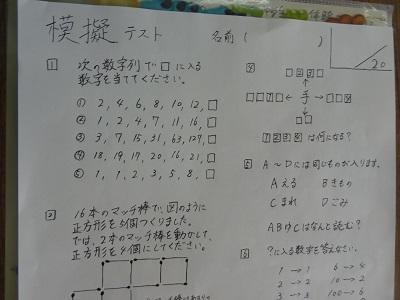 模擬テスト
名前(　　　　)
20
1 次の数字列で□に入る
数字を当ててください。
① 2, 4, 6, 8, 10, 12, □
② 1, 2, 4, 7, 11, 16, □
③ 3, 7, 15, 31, 63, 127, □
④ 18, 19, 17, 20, 16, 21, □
⑤ 1, 1, 2, 3, 5, 8, □
2 16本のマッチ棒で、図のように
正方形を5個つくりました。
では、2本のマッチ棒を動かして、
正方形を4個にしてください。
手
は何になる?
5 A～Dには同じものが入ります。
Aえる Bきもの
Cまれ Dごみ
ABゆCはなんと読む?
?に入る数字を答えなさい。
1 → 1 6 → 4
2 → 2 100 → 6